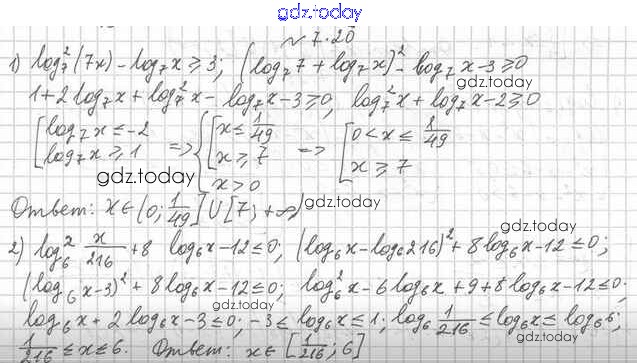 gdz.today
№ 7.20
1) log₇²(7x) - log₇x ≥ 3; (log₇7 + log₇x)² - log₇x - 3 ≥ 0
gdz.today
1 + 2log₇x + log₇²x - log₇x - 3 ≥ 0, log₇²x + log₇x - 2 ≥ 0
[log₇x ≤ -2 log₇x ≥ 1 => {[x ≤ 1/49 x ≥ 7 x > 0 => [0 < x ≤ 1/49 x ≥ 7
gdz.today
gdz.today
Ответ: x ∈ (0; 1/49] ∪ [7; +∞)
gdz.today
2) log₆² x/216 + 8 log₆x - 12 ≤ 0; (log₆x - log₆216)² + 8log₆x - 12 ≤ 0;
(log₆x - 3)² + 8log₆x - 12 ≤ 0; log₆²x - 6log₆x + 9 + 8log₆x - 12 ≤ 0;
gdz.today
log₆x + 2log₆x - 3 ≤ 0; -3 ≤ log₆x ≤ 1; log₆ 1/216 ≤ log₆x ≤ log₆6;
1/216 ≤ x ≤ 6. Ответ: x ∈ [1/216; 6]
gdz.today